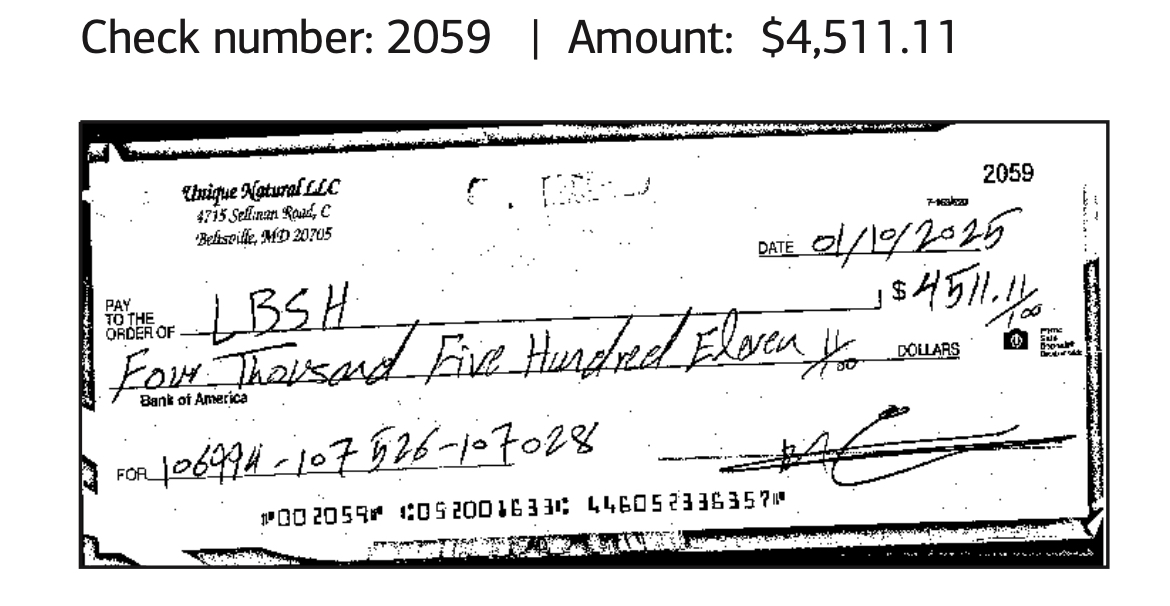 Check number: 2059 | Amount: $4,511.11
2059
Unique Natural LLC
4715 Sellman Road, C
Beltsville, MD 20705
DATE 01/10/2025
PAY
TO THE
ORDER OF LBSH $ 4511.11/100
Four Thousand Five Hundred Eleven 11/100 DOLLARS
Bank of America
FOR 106994-107526-107028
⑈002059⑈ ⑆052001633⑆ 446052336357⑈